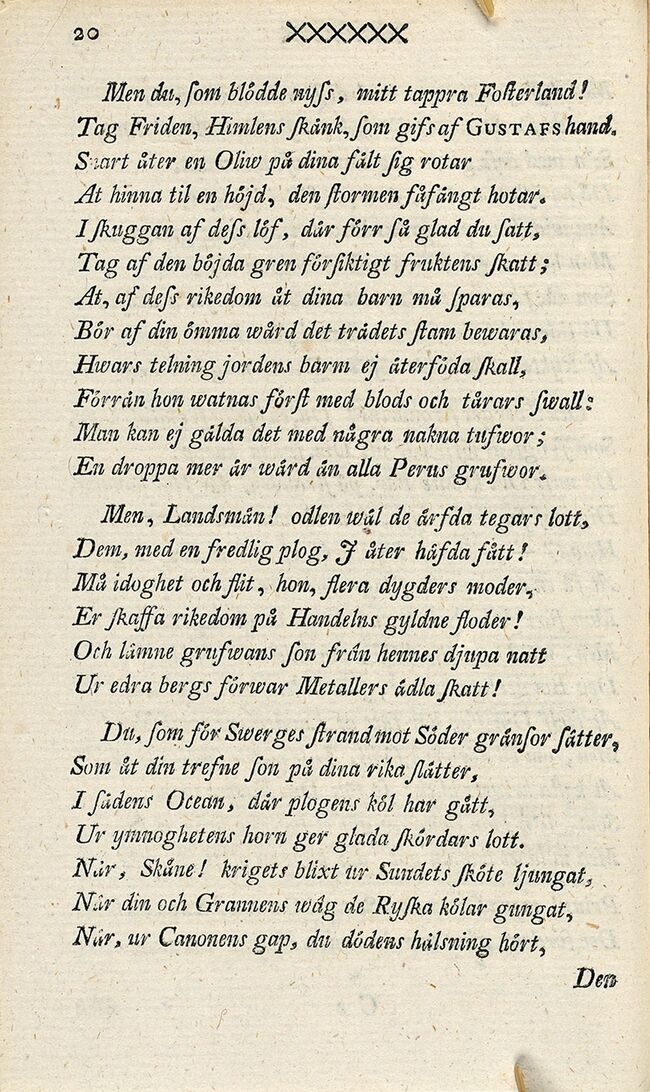 20 ××××××
Men du, ſom blödde nyſs, mitt tappra Foſterland!
Tag Friden, Himlens ſkänk, ſom gifs af GUSTAFS hand.
Snart åter en Oliw på dina fält ſig rotar
At hinna til en höjd, den ſtormen fåfängt hotar.
I ſkuggan af deſs löf, där förr ſå glad du ſatt,
Tag af den böjda gren förſiktigt fruktens ſkatt;
At, af deſs rikedom åt dina barn må ſparas,
Bör af din ömma wård det trädets ſtam bewaras,
Hwars telning jordens barm ej återföda ſkall,
Förrän hon watnas förſt med blods och tårars ſwall:
Man kan ej gälda det med några nakna tufwor;
En droppa mer är wärd än alla Perus grufwor.
Men, Landsmän! odlen wäl de ärfda tegars lott,
Dem, med en fredlig plog, J åter häfda fått!
Må idoghet och flit, hon, flera dygders moder,
Er ſkaffa rikedom på Handelns gyldne floder!
Och lämne grufwans ſon från hennes djupa natt
Ur edra bergs förwar Metallers ädla ſkatt!
Du, ſom för Swerges ſtrand mot Söder gränſor ſätter,
Som åt din trefne ſon på dina rika ſlätter,
I ſädens Ocean, där plogens köl har gått,
Ur ymnoghetens horn ger glada ſkördars lott.
När, Skåne! krigets blixt ur Sundets ſköte ljungat,
När din och Grannens wåg de Ryſka kölar gungat,
När, ur Canonens gap, du dödens hälsning hört,
Den